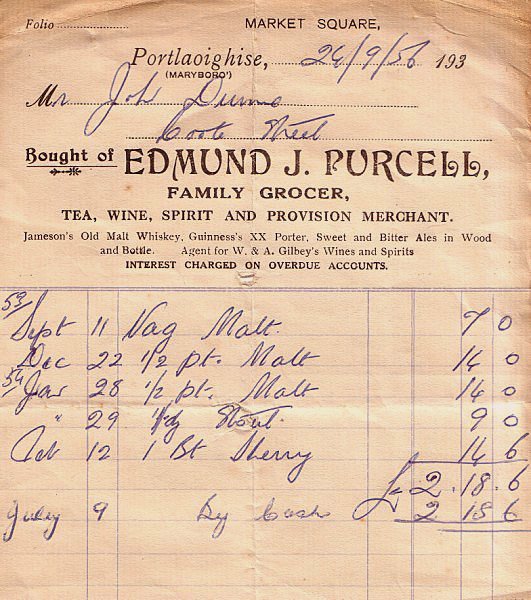 Folio
MARKET SQUARE,
Portlaoighise, 24/9/56 193
(MARYBORO')
Mr Joh Dunne
Coote Street
Bought of EDMUND J. PURCELL,
FAMILY GROCER,
TEA, WINE, SPIRIT AND PROVISION MERCHANT.
Jameson's Old Malt Whiskey, Guinness's XX Porter, Sweet and Bitter Ales in Wood
and Bottle. Agent for W. & A. Gilbey's Wines and Spirits
INTEREST CHARGED ON OVERDUE ACCOUNTS.
53
Sept 11 Nag Malt. 7 0
Dec 22 1/2 pt. Malt 14 0
54 Jan 28 1/2 pt. Malt 14 0
" 29 Stout. 9 0
Oct 12 1 Bt Sherry 14 6
£2.18.6
July 9 By Cash 2 18 6